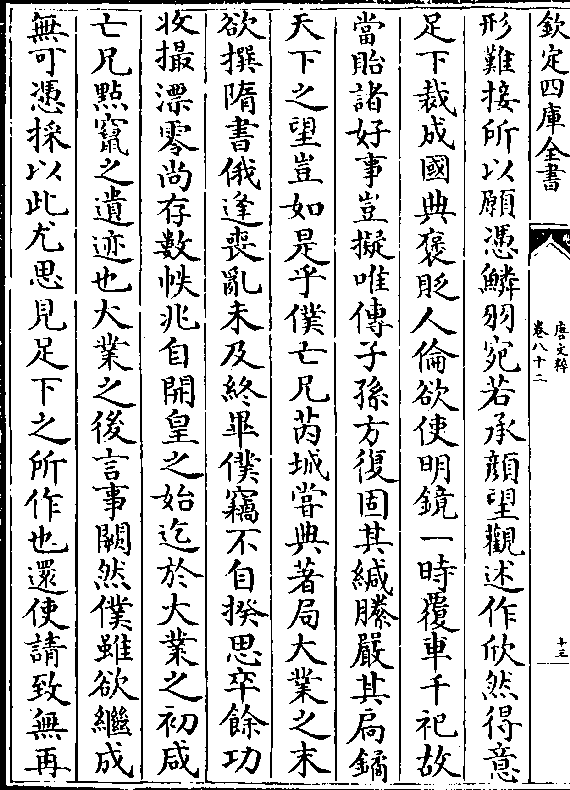 欽定四庫全書
唐文粹
卷八十二
十三
形難接所以願憑鱗羽宛若承顔望觀述作欣然得意
足下裁成國典褒貶人倫欲使明鏡一時覆車千祀故
當貽諸好事豈擬唯傳子孫方復固其緘縢嚴其扃鐍
天下之望豈如是乎僕亡兄芮城嘗典著局大業之末
欲撰隋書俄逢喪亂未及終畢僕竊不自揆思卒餘功
收撮漂零尚存數帙兆自開皇之始迄於大業之初咸
亡兄㸃竄之遺迹也大業之後言事闕然僕雖欲繼成
無可憑採以此尤思見足下之所作也還使請致無再